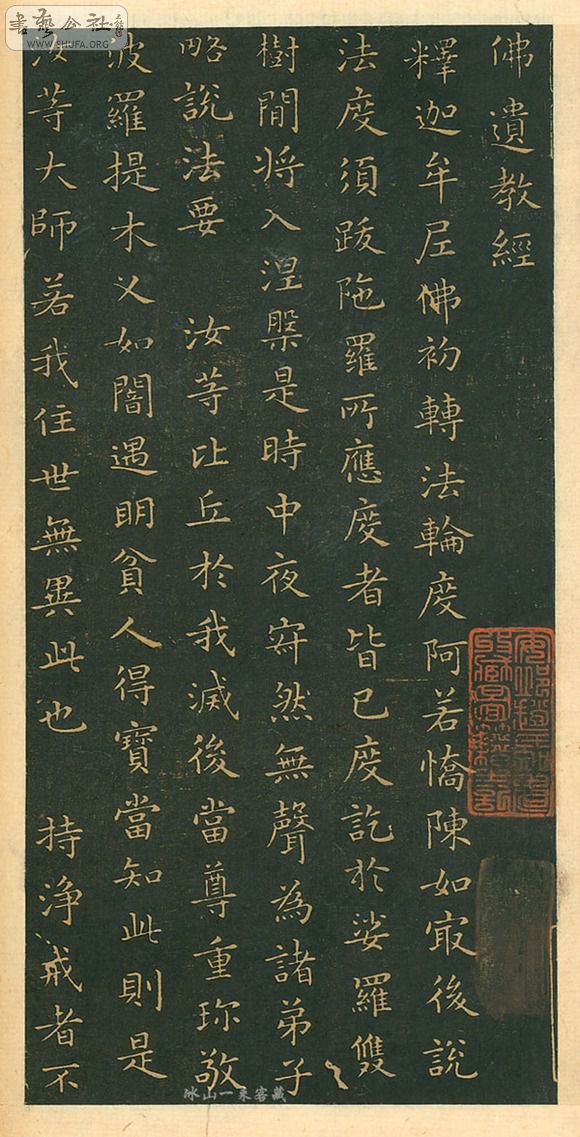 佛遺教經
釋迦牟尼佛初轉法輪度阿若憍陳如㝡後說
法度須跋陁羅所應度者皆已度訖於娑羅雙
樹間将入涅槃是時中夜寂然無聲為諸弟子
略說法要 汝等比丘於我滅後當尊重珎敬
波羅提木叉如闇遇明貧人得寶當知此則是
汝等大師若我住世無異此也 持淨戒者不
書藝公社
WWW.SHUFA.ORG
冰山一来客藏